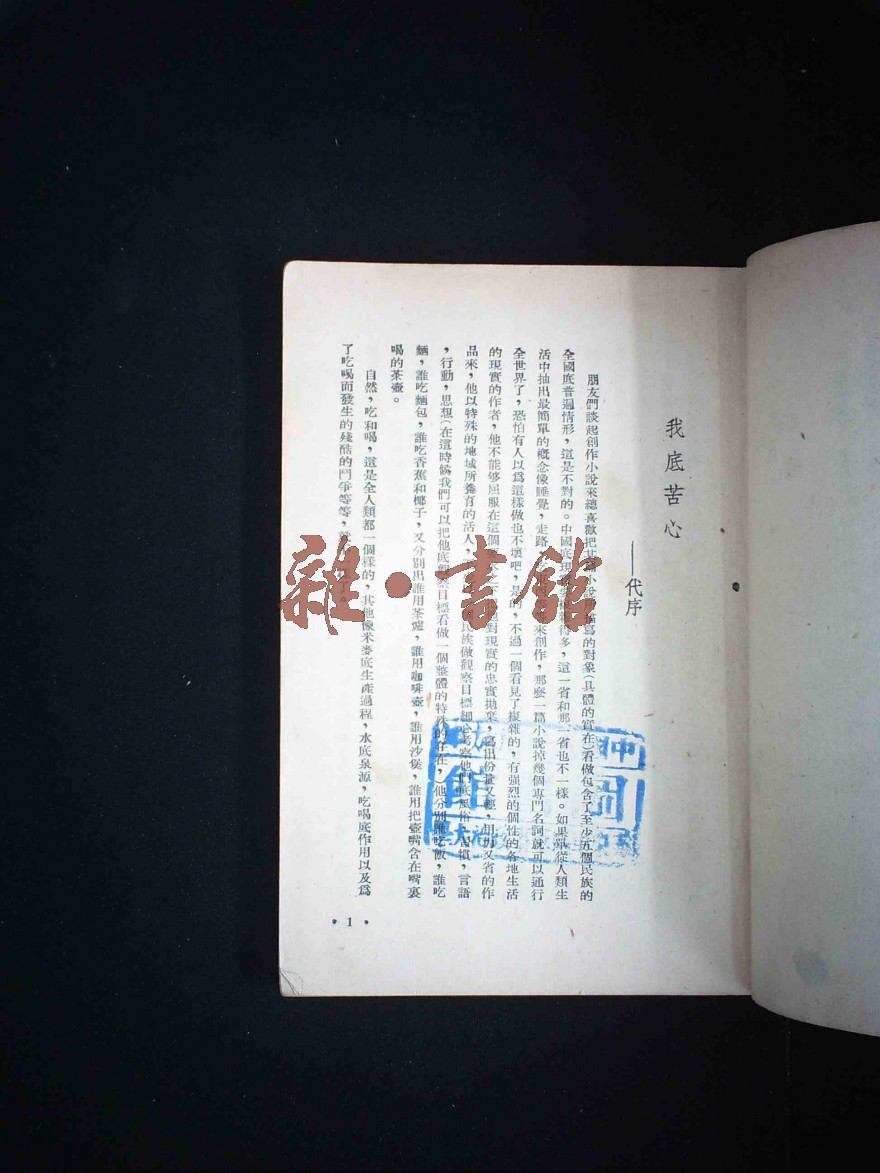 我底苦心
——代序
朋友們談起創作小說來總喜歡把某篇小說所描寫的對象(具體的實在)看做包含了至少五個民族的
全國底普遍情形,這是不對的。中國底現得多,這一省和那一省也不一樣。如果單從人類生
活中抽出最簡單的概念像睡覺,走路來創作,那麽一篇小說掉幾個專門名詞就可以通行
全世界了,恐怕有人以爲這樣做也不壞吧,是的,不過一個看見了複雜的,有强烈的個性的各地生活
的現實的作者,他不能够屈服在這個之下對現實的忠實拋棄,寫出份量又輕,用力又省的作
品來,他以特殊的地域所養育的活人,民族做觀察目標細心考察他們底風俗,習慣,言語
,行動,思想(在這時候我們可以把他底觀察目標看做一個整體的特殊的存在,)他分別誰吃飯,誰吃
麵,誰吃麵包,誰吃香蕉和椰子,又分別出誰用茶爐,誰用咖啡壺,誰用沙煲,誰用把壺嘴含在嘴裏
喝的茶壺。
自然,吃和喝,這是全人類都一個樣的,其他像米麥底生產過程,水底泉源,吃喝底作用以及爲
了吃喝而發生的殘酷的鬥爭等等,就了。
• 1 •
雜·書館